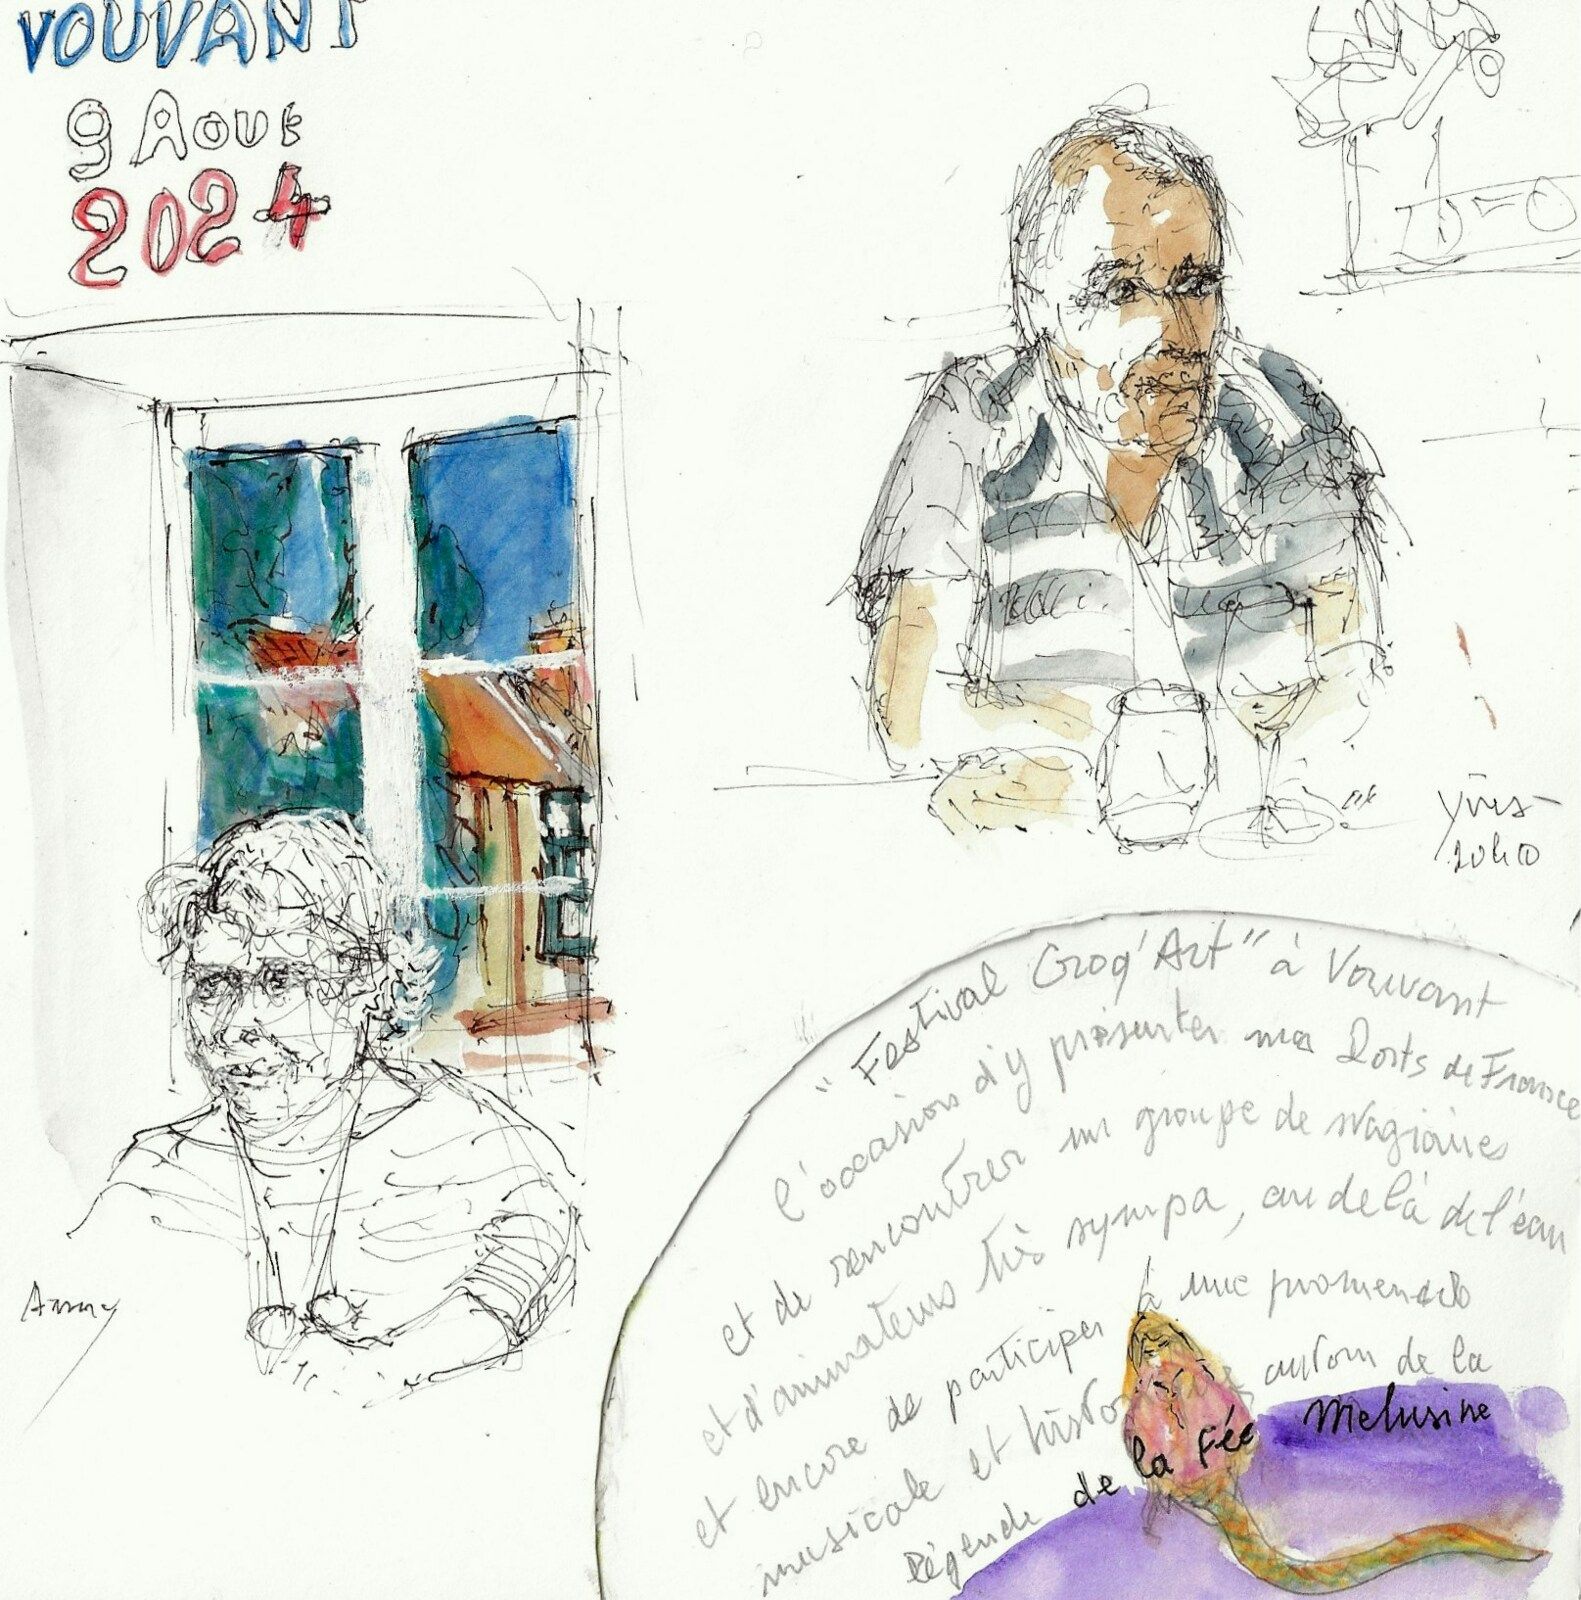 VOUVANT
9 Aout
2024
Yves
20h00
Anny
"Festival Croq'Art" à Vouvant
l'occasion d'y présenter mes Ports de France
et de rencontrer un groupe de stagiaires
et d'animateurs très sympa, au delà de l'eau
et encore de participer à une promenade
musicale et historique autour de la
légende de la Fée Melusine